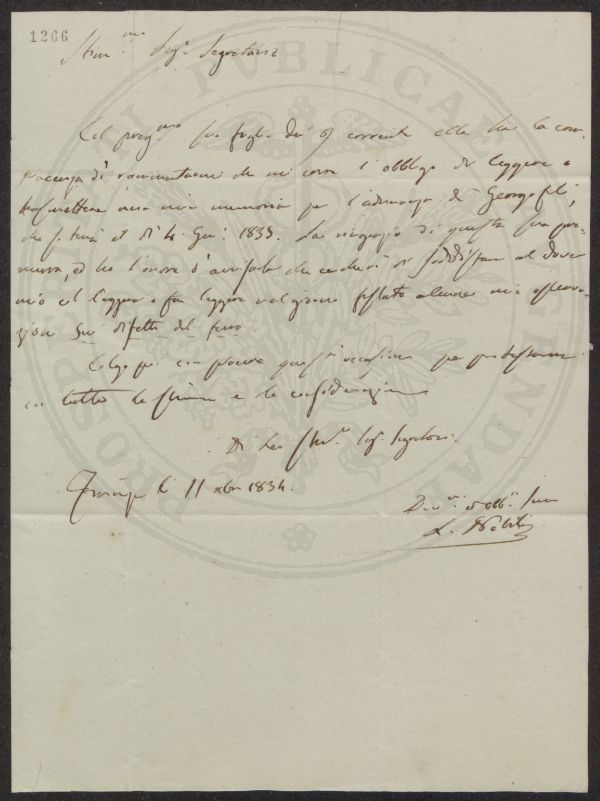 1266
Stim.mo Sig.r Segretario
Col preg.mo suo foglio del 9 corrente ella ha la com-
piacenza di rammentarmi che mi corre l'obbligo di leggere o
trasmettere una mia memoria per l'adunanza di Georgofili,
che si terrà il dì 4 Gen. 1835. La ringrazio di questa sua pre-
mura, ed ho l'onore d'avvisarla che cercherò di soddisfare al dover
mio col leggere o far leggere nel giorno fissato alcune mie osserva-
zioni sui difetti del
Colgo poi con piacere quest'occasione per protestarmi
con tutta la stima e la considerazione
Di Lei Stim.o Sig. Segretario
Firenze li 11 xbre 1834.
Dev.mo ed Obb.mo Serv
L. Nobili
PROSPERITATI PVBLICAE AVGENDAE